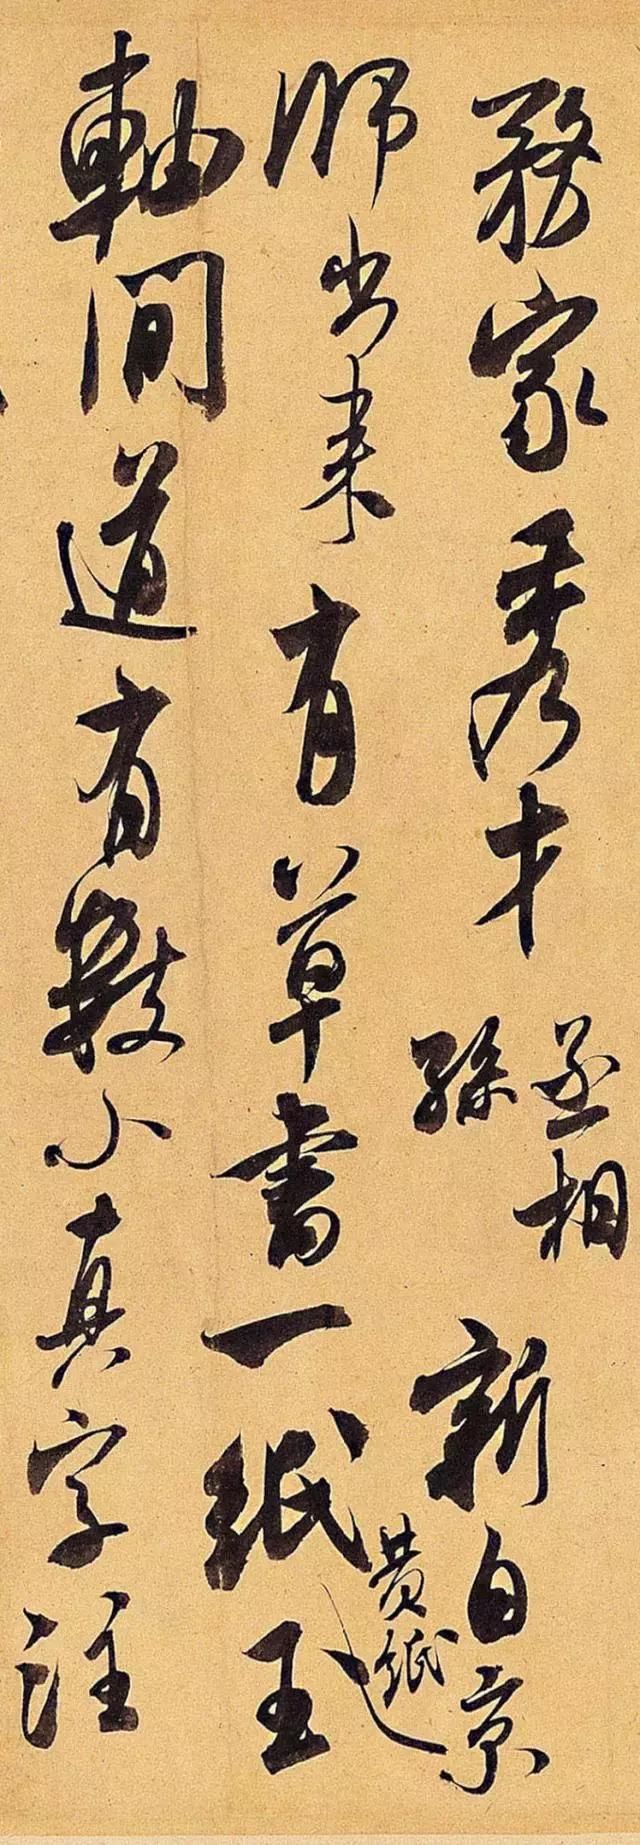 務家秀才
丞相
孫
新自京
師出来有草書一紙
黄紙
玉
軸間道有數小真字注